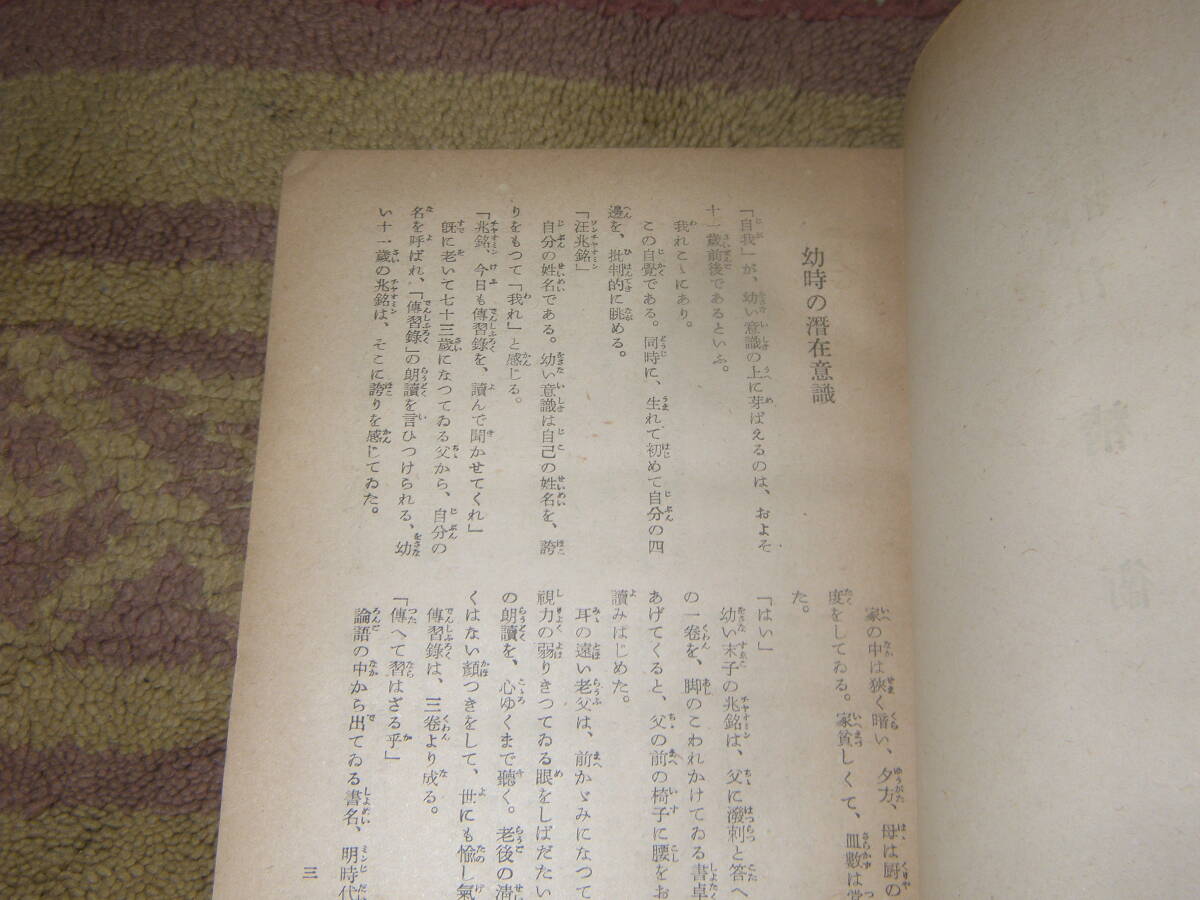 幼時の潛在意識
「自我」が、幼い意識の上に芽ばえるのは、およそ
十一歲前後であるといふ。
我れこゝにあり。
この自覺である。同時に、生れて初めて自分の四
邊を、批判的に眺める。
「汪兆銘」
自分の姓名である。幼い意識は自己の姓名を、誇
りをもつて「我れ」と感じる。
「兆銘、今日も傳習錄を、讀んで聞かせてくれ」
旣に老いて七十三歲になつてゐる父から、自分の
名を呼ばれ、「傳習錄」の朗讀を言ひつけられる、幼
い十一歲の兆銘は、そこに誇りを感じてゐた。
家の中は狹く暗い、夕方、母は厨の
度をしてゐる。家貧しくて、皿數は
た。
「はい」
幼い末子の兆銘は、父に潑刺と答へ
の一卷を、脚のこわれかけてゐる書卓
あげてくると、父の前の椅子に腰をお
讀みはじめた。
耳の遠い老父は、前かゞみになつて
視力の弱りきつてゐる眼をしばだたい
の朗讀を、心ゆくまで聽く。老後の淸
くはない顏つきをして、世にも愉し氣
傳習錄は、三卷より成る。
「傳へて習はざる乎」
論語の中から出てゐる書名、明時代
三